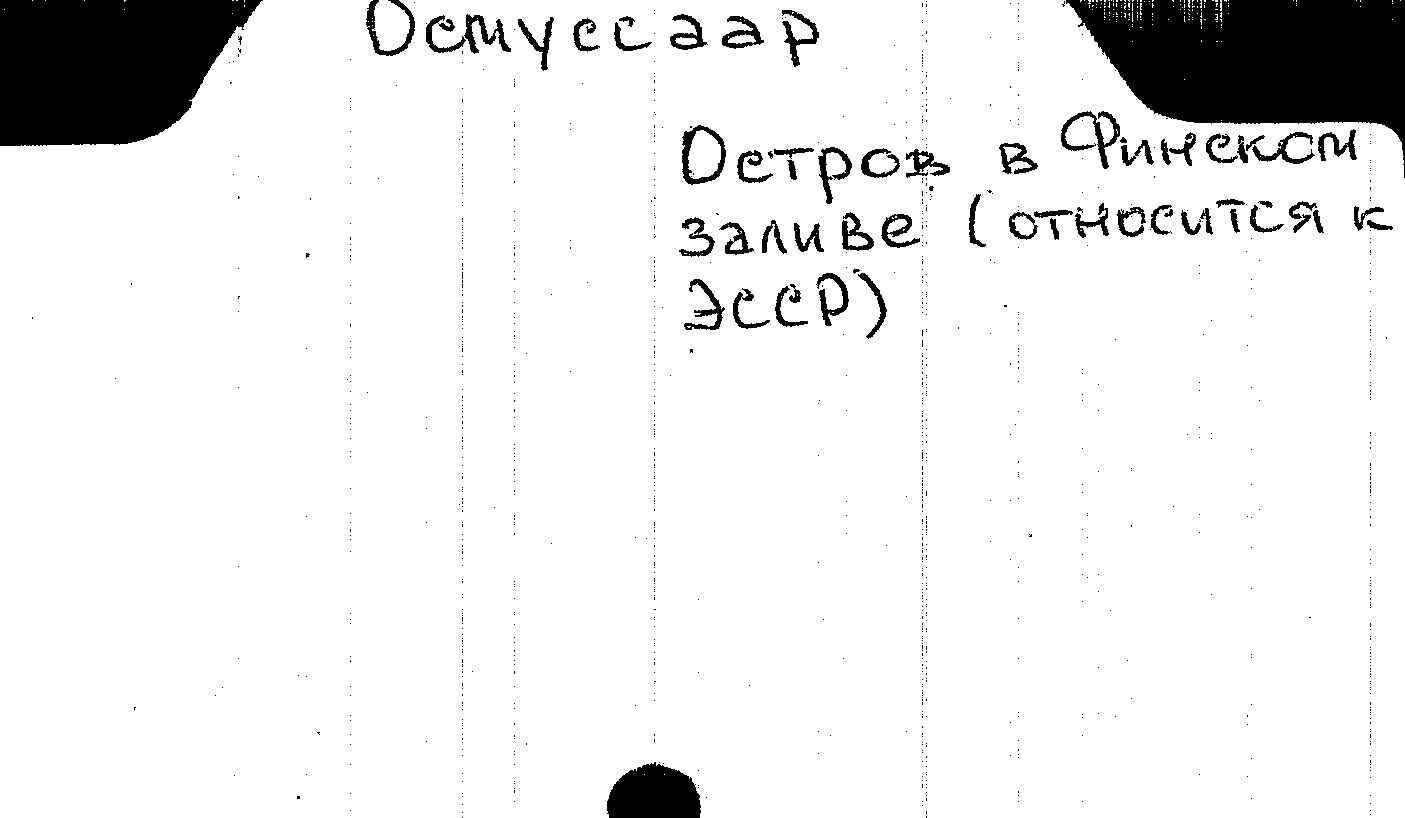 Осмуссаар
Остров в Финском
заливе (относится к
ЭССР)